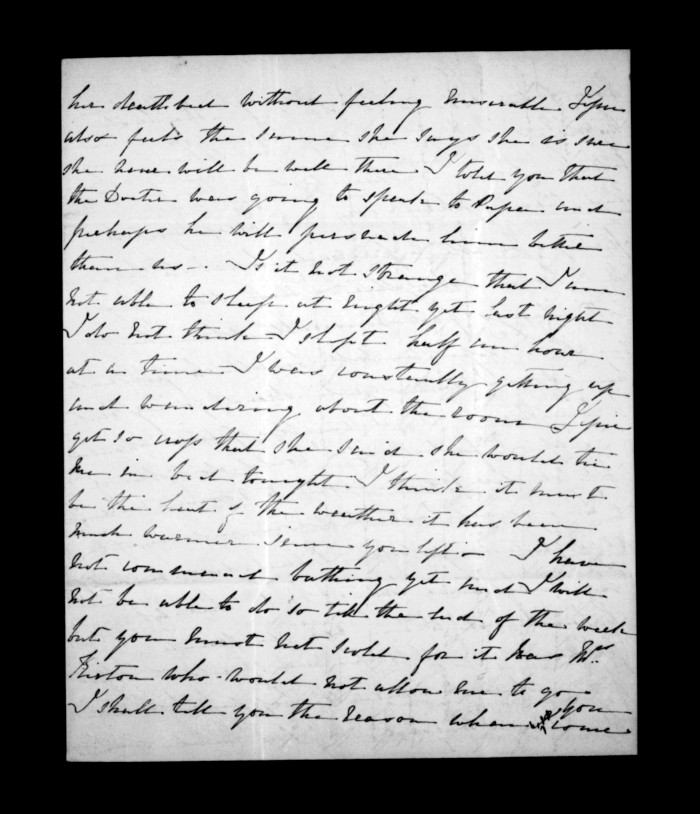 her deathbed without feeling miserable
also feels the same she says she is sure
she never will be well there I told you that
the Doctor was going to speak to Papa and
perhaps he will persuade him better
than us - Is it not strange that I am
not able to sleep at night yet last night
I do not think I slept half an hour
at a time I was constantly getting up
and wandering about the room
got so cross that she said she would tie
me in bed tonight I think it must
be the heat of the weather it has been
much warmer since you left - I have
not commenced bathing yet and I will
not be able to do so till the end of the week
but you must not scold for it was Mrs
who would not allow me to go
I shall tell you the reason when you come